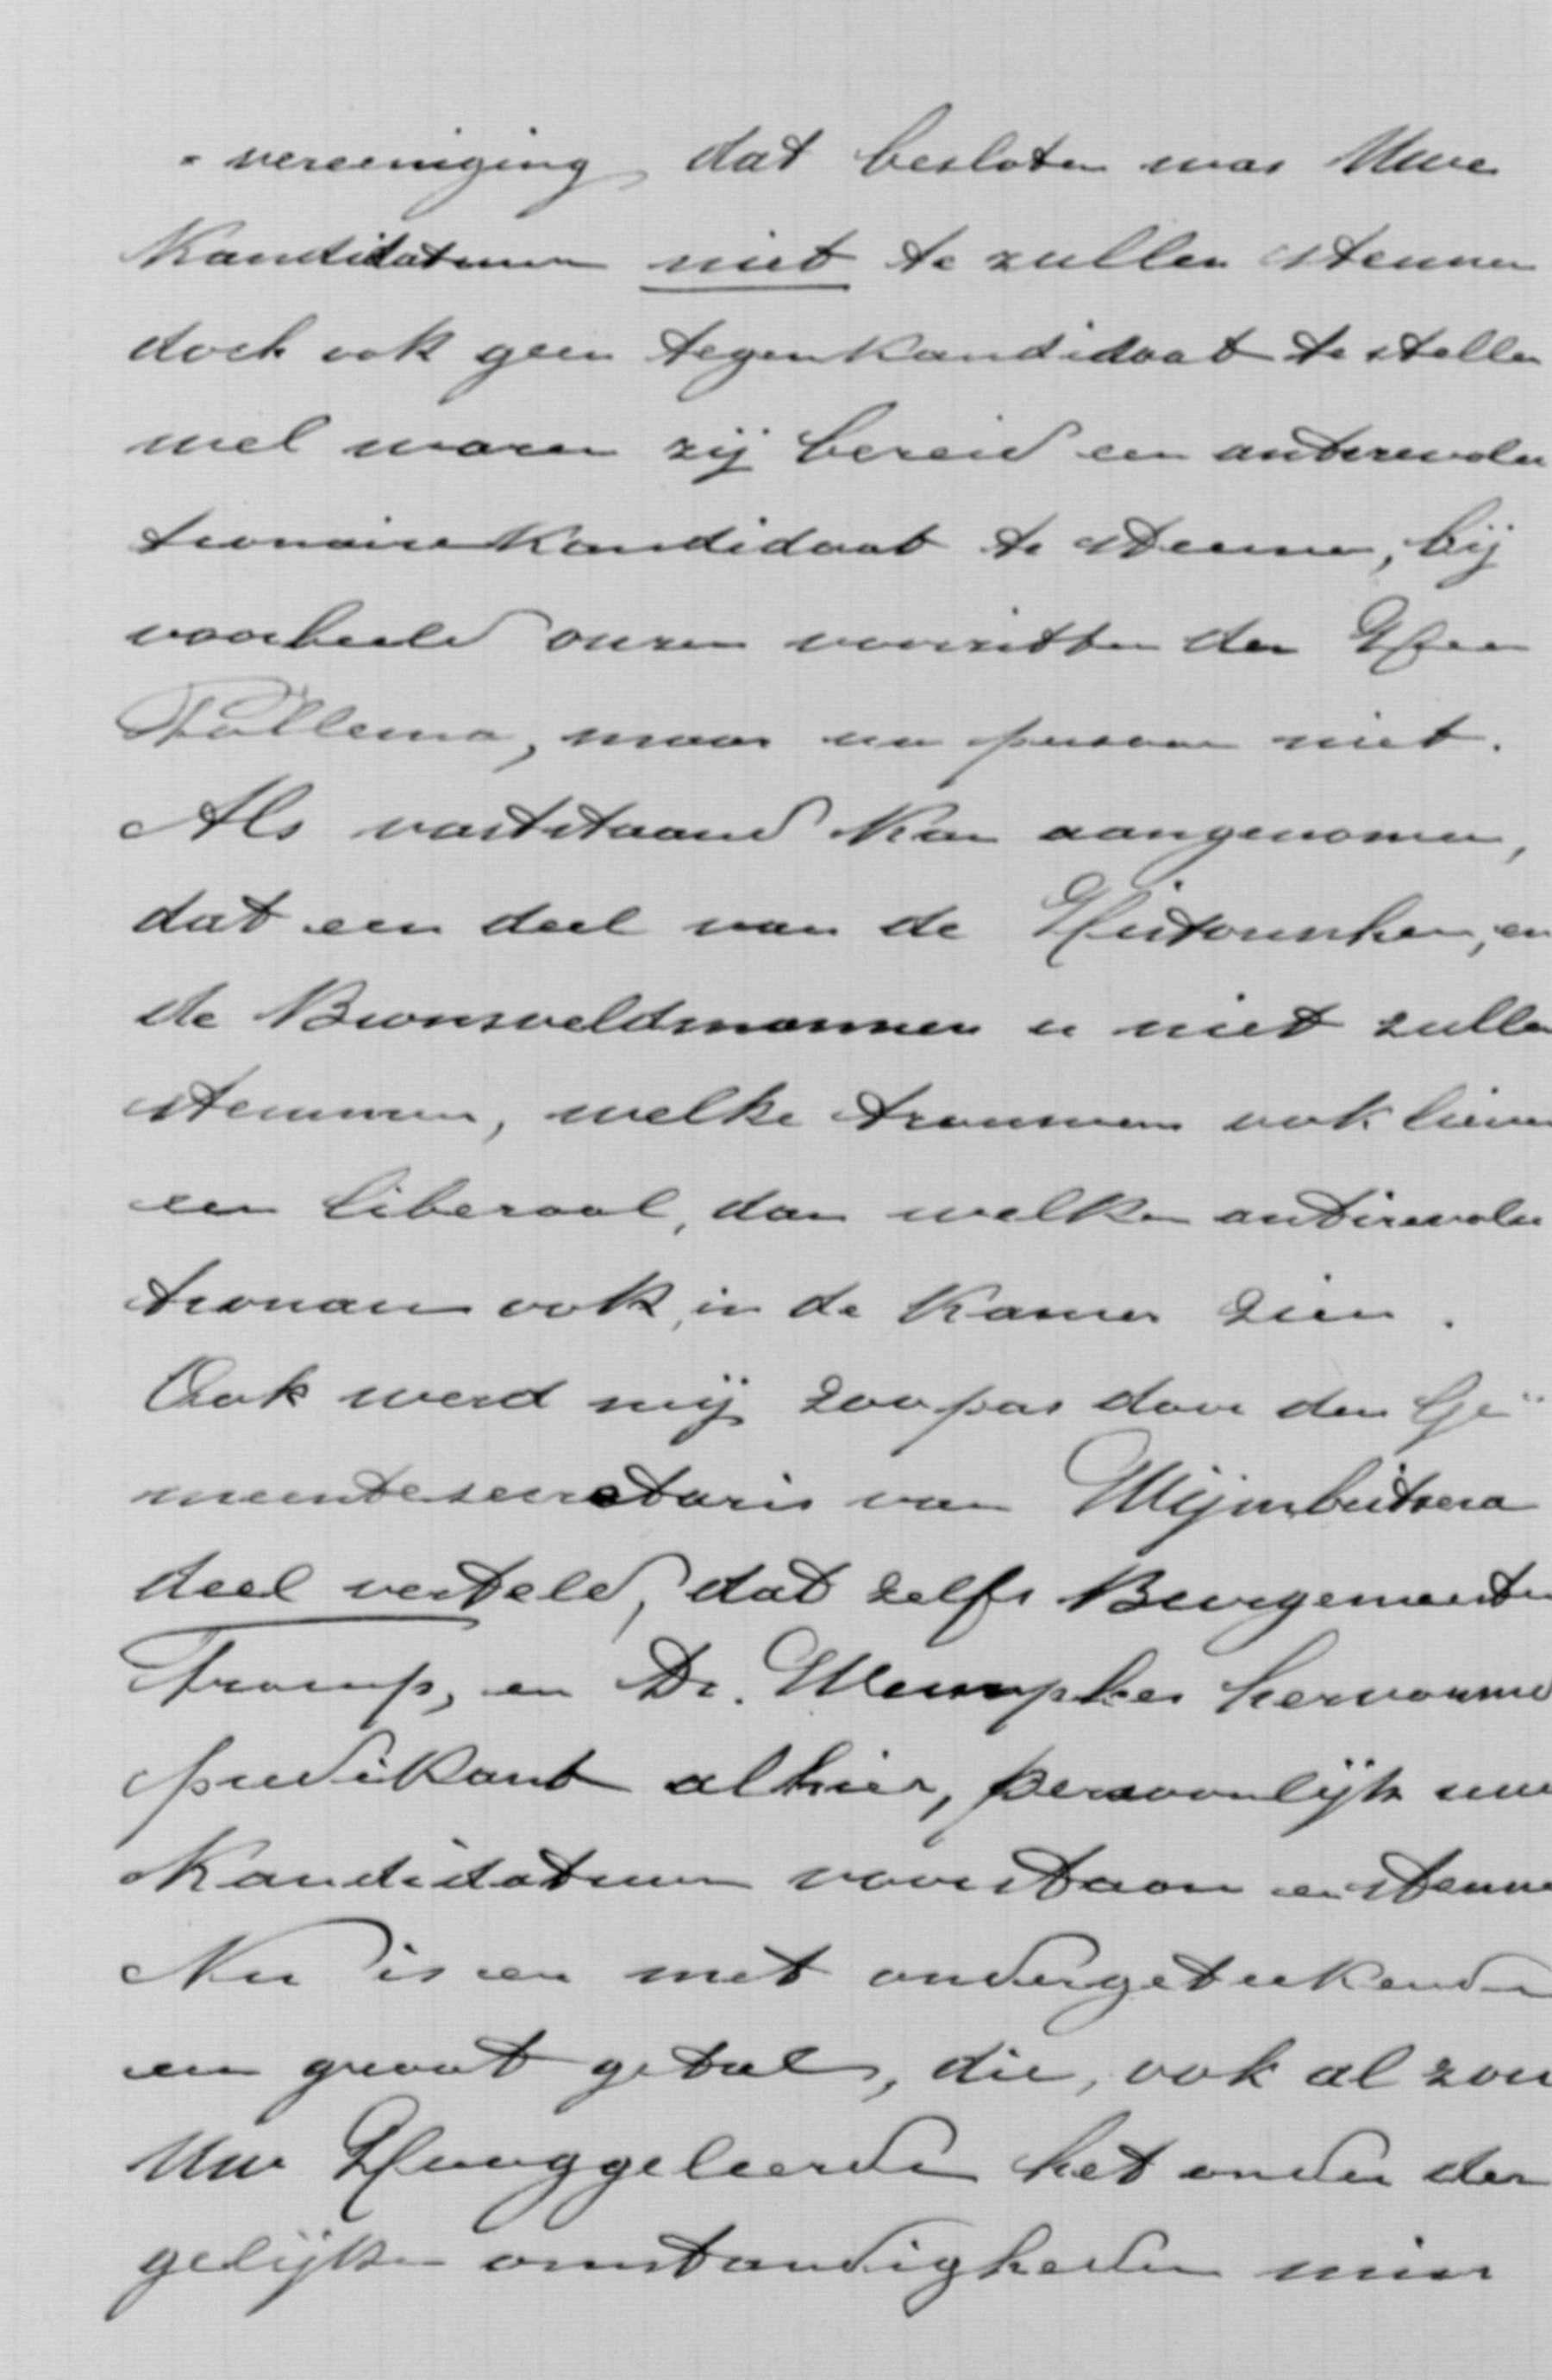 "vereeniging, dat besloten was Uwe
Kandidatuur niet te zullen steunen
doch ook geen tegenkandidaat te stellen
wel waren zij bereid een antirevolu
tionaire Kandidaat te steunen, bij
voorbeeld onzen voorzitter den Heer
Tállema, maar uw persoon niet.
Als vaststaand kan aangenomen,
dat een deel van de Historischen, en
de Bronsveldmannen u niet zullen
stemmen, welke trouwens ook liever
een liberaal, dan welken antirevolu
tionair ook, in de Kamer zien.
Ook werd mij zoo pas door den Ge"
meentesecretaris van Wijmbritsera
deel verteld, dat zelfs Burgemeester
Tromp, en Dr. Wumpkes hervormd
predikant alhier, persoonlijk uw
Kandidatuur voorstaan en steunen
Nu is er met ondergeteekende
een groot getal, die, ook al zou
Uw Hooggeleerde het onder der
gelijke omstandigheden min